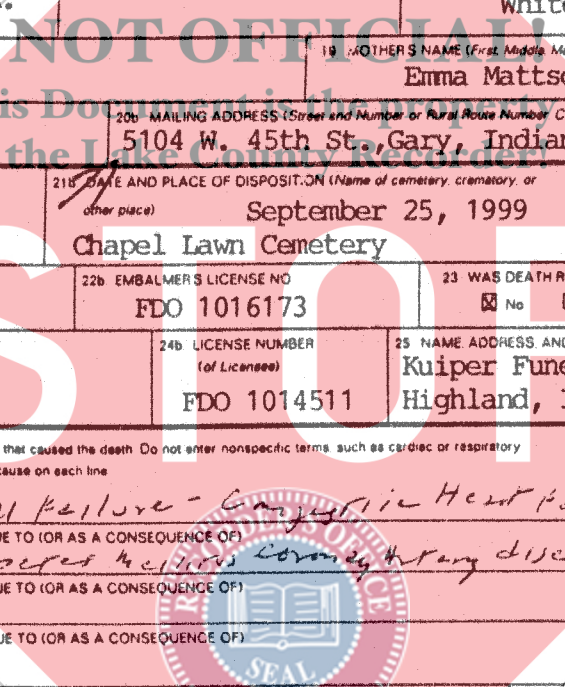 White
NOT OFFICIAL!
19 MOTHER'S NAME (First, Middle, M
Emma Matts
is Document is the property
20b MAILING ADDRESS (Street and Number or Rural Route Number, C
5104 W. 45th St., Gary, Indian
the Lake County Recorder!
21b DATE AND PLACE OF DISPOSITION (Name of cemetery, crematory, or
other place)
September 25, 1999
Chapel Lawn Cemetery
STOP
22b EMBALMER'S LICENSE NO
FDO 1016173
23 WAS DEATH R
No
24b LICENSE NUMBER
(of Licensee)
FDO 1014511
25 NAME, ADDRESS, AND
Kuiper Fune
Highland, I
that caused the death Do not enter nonspecific terms, such as cardiac or respiratory
cause on each line
Failure - Congestive Heart
UE TO (OR AS A CONSEQUENCE OF)
Mellitus Coronary Artery dise
UE TO (OR AS A CONSEQUENCE OF)
UE TO (OR AS A CONSEQUENCE OF)
RECORDER'S OFFICE
SEAL